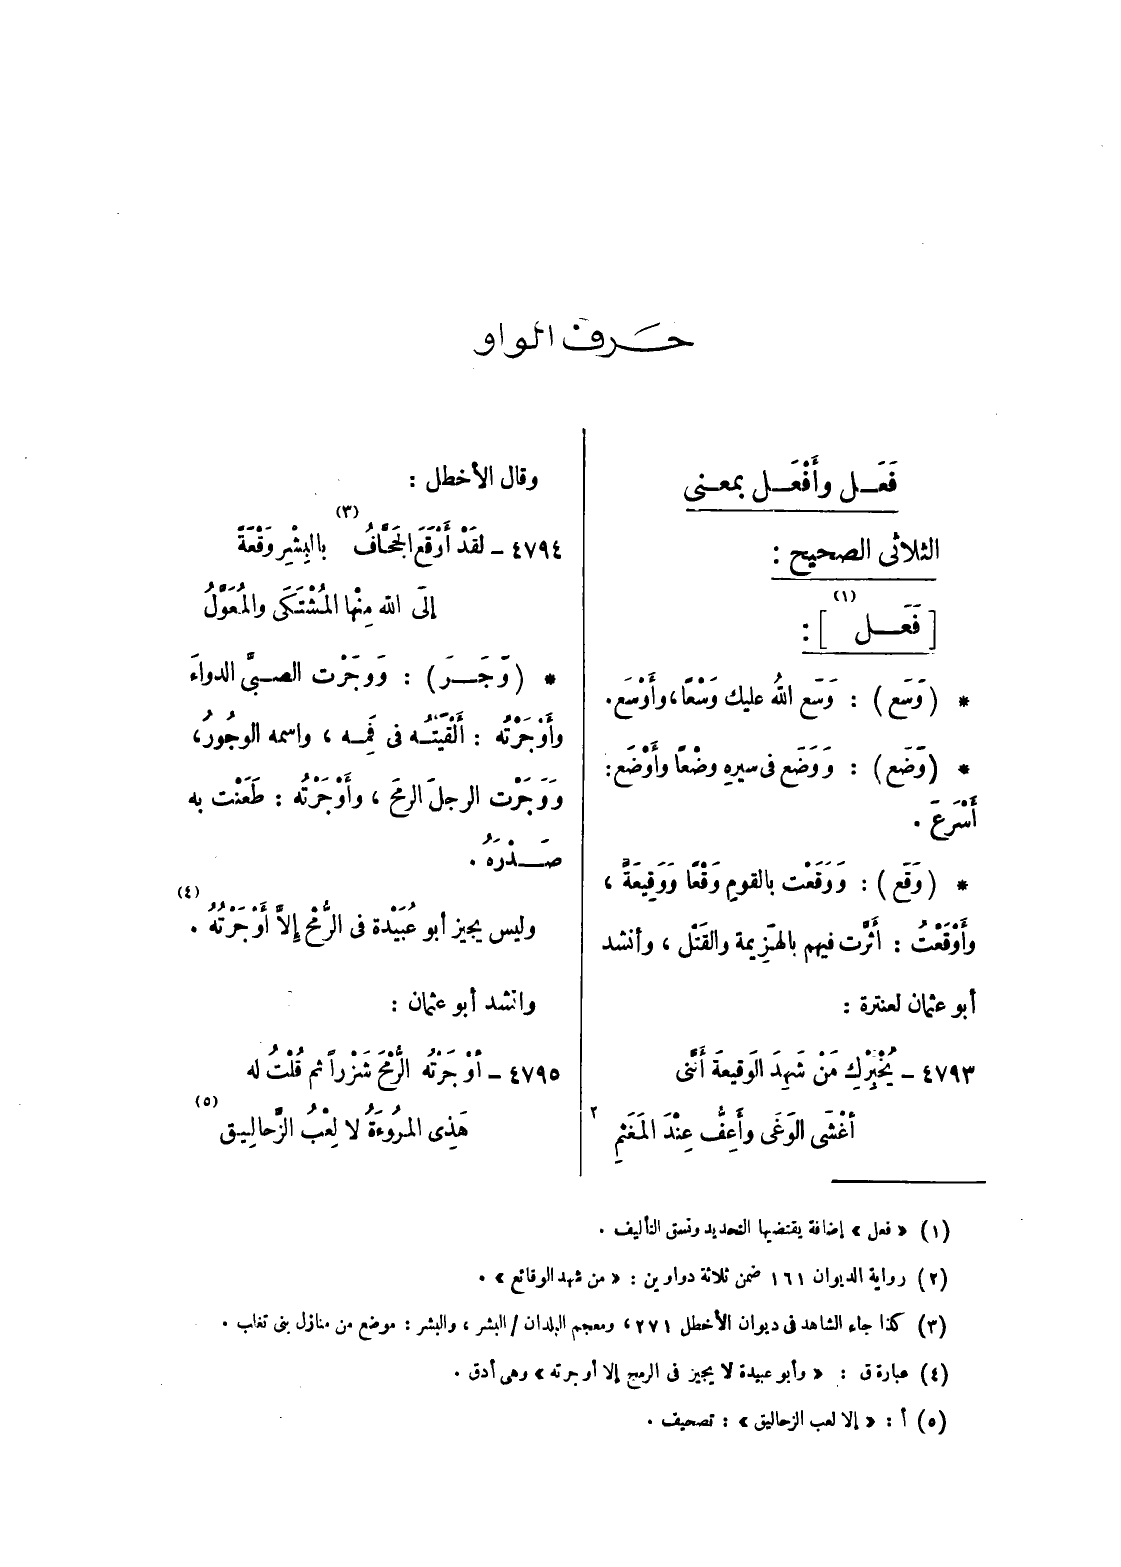 حرف الواو
فَعَـل وأَفْعَـل بمعـنى
الثلاثى الصحيح :
[ فَعَـــل (١) ] :
* ( وَسَع ) : وَسَع اللهُ عليك وَسْعًا ، وأَوْسَع .
* ( وَضَع ) : وَوَضَع فى سيرِهِ وضْعًا وأَوْضَع :
أَسْرَعَ .
* ( وَقَع ) : وَوَقَعْت بالقومِ وَقْعًا وَوَقِيعَةً ،
وأَوْقَعْتُ : أَثَّرت فيهم بالهَزِيمة والقَتْل ، وأنشد
أبو عثمان لعنترة :
٤٧٩٣ ــ يُخْبِرْكِ مَنْ شَهِدَ الوَقِيعَة أَنَّنى
أغْشَى الوَغَى وأَعِفُّ عِنْدَ المَغْنَمِ ٢
وقال الأخطل :
٤٧٩٤ ــ لقَدْ أَوْقَعَ الجَحَّافُ (٣) بالبِشْرِ وَقْعَةً
إلَى الله مِنْها المُشْتَكَى والمُعَوَّلُ
* ( وَجَــرَ ) : وَوَجَرْت الصبىَّ الدواءَ
وأَوْجَرْتُه : أَلْقَيْتُــه فى فَمِــه ، واسمه الوجُورُ ،
وَوَجَرْت الرجلَ الرمحَ ، وأَوْجَرْتُه : طَعَنْت به
صَــدْرَهُ .
وليس يجيز أبو عُبَيْدة فى الرُّمْحِ إلاَّ أَوْجَرْتُهُ (٤) .
وانشد أبو عثمان :
٤٧٩٥ ــ أوْجَرْتُه الرُّمْحَ شَزْراً ثم قُلْتُ له
هَذِى المرُوءَةُ لا لِعْبُ الزَّحالِيـق (٥)
(١) « فعل » إضافة يقتضيها التحديد ونسق التأليف .
(٢) رواية الديوان ١٦١ ضمن ثلاثة دواوين : « من شهد الوقائع » .
(٣) كذا جاء الشاهد فى ديوان الأخطل ٢٧١ ، ومعجم البلدان / البشر ، والبشر : موضع من منازل بنى تغلب .
(٤) عبارة ق : « وأبو عبيدة لا يجيز فى الرمح إلا أوجرته » وهى أدق .
(٥) أ : « إلا لعب الزحاليق » : تصحيف .